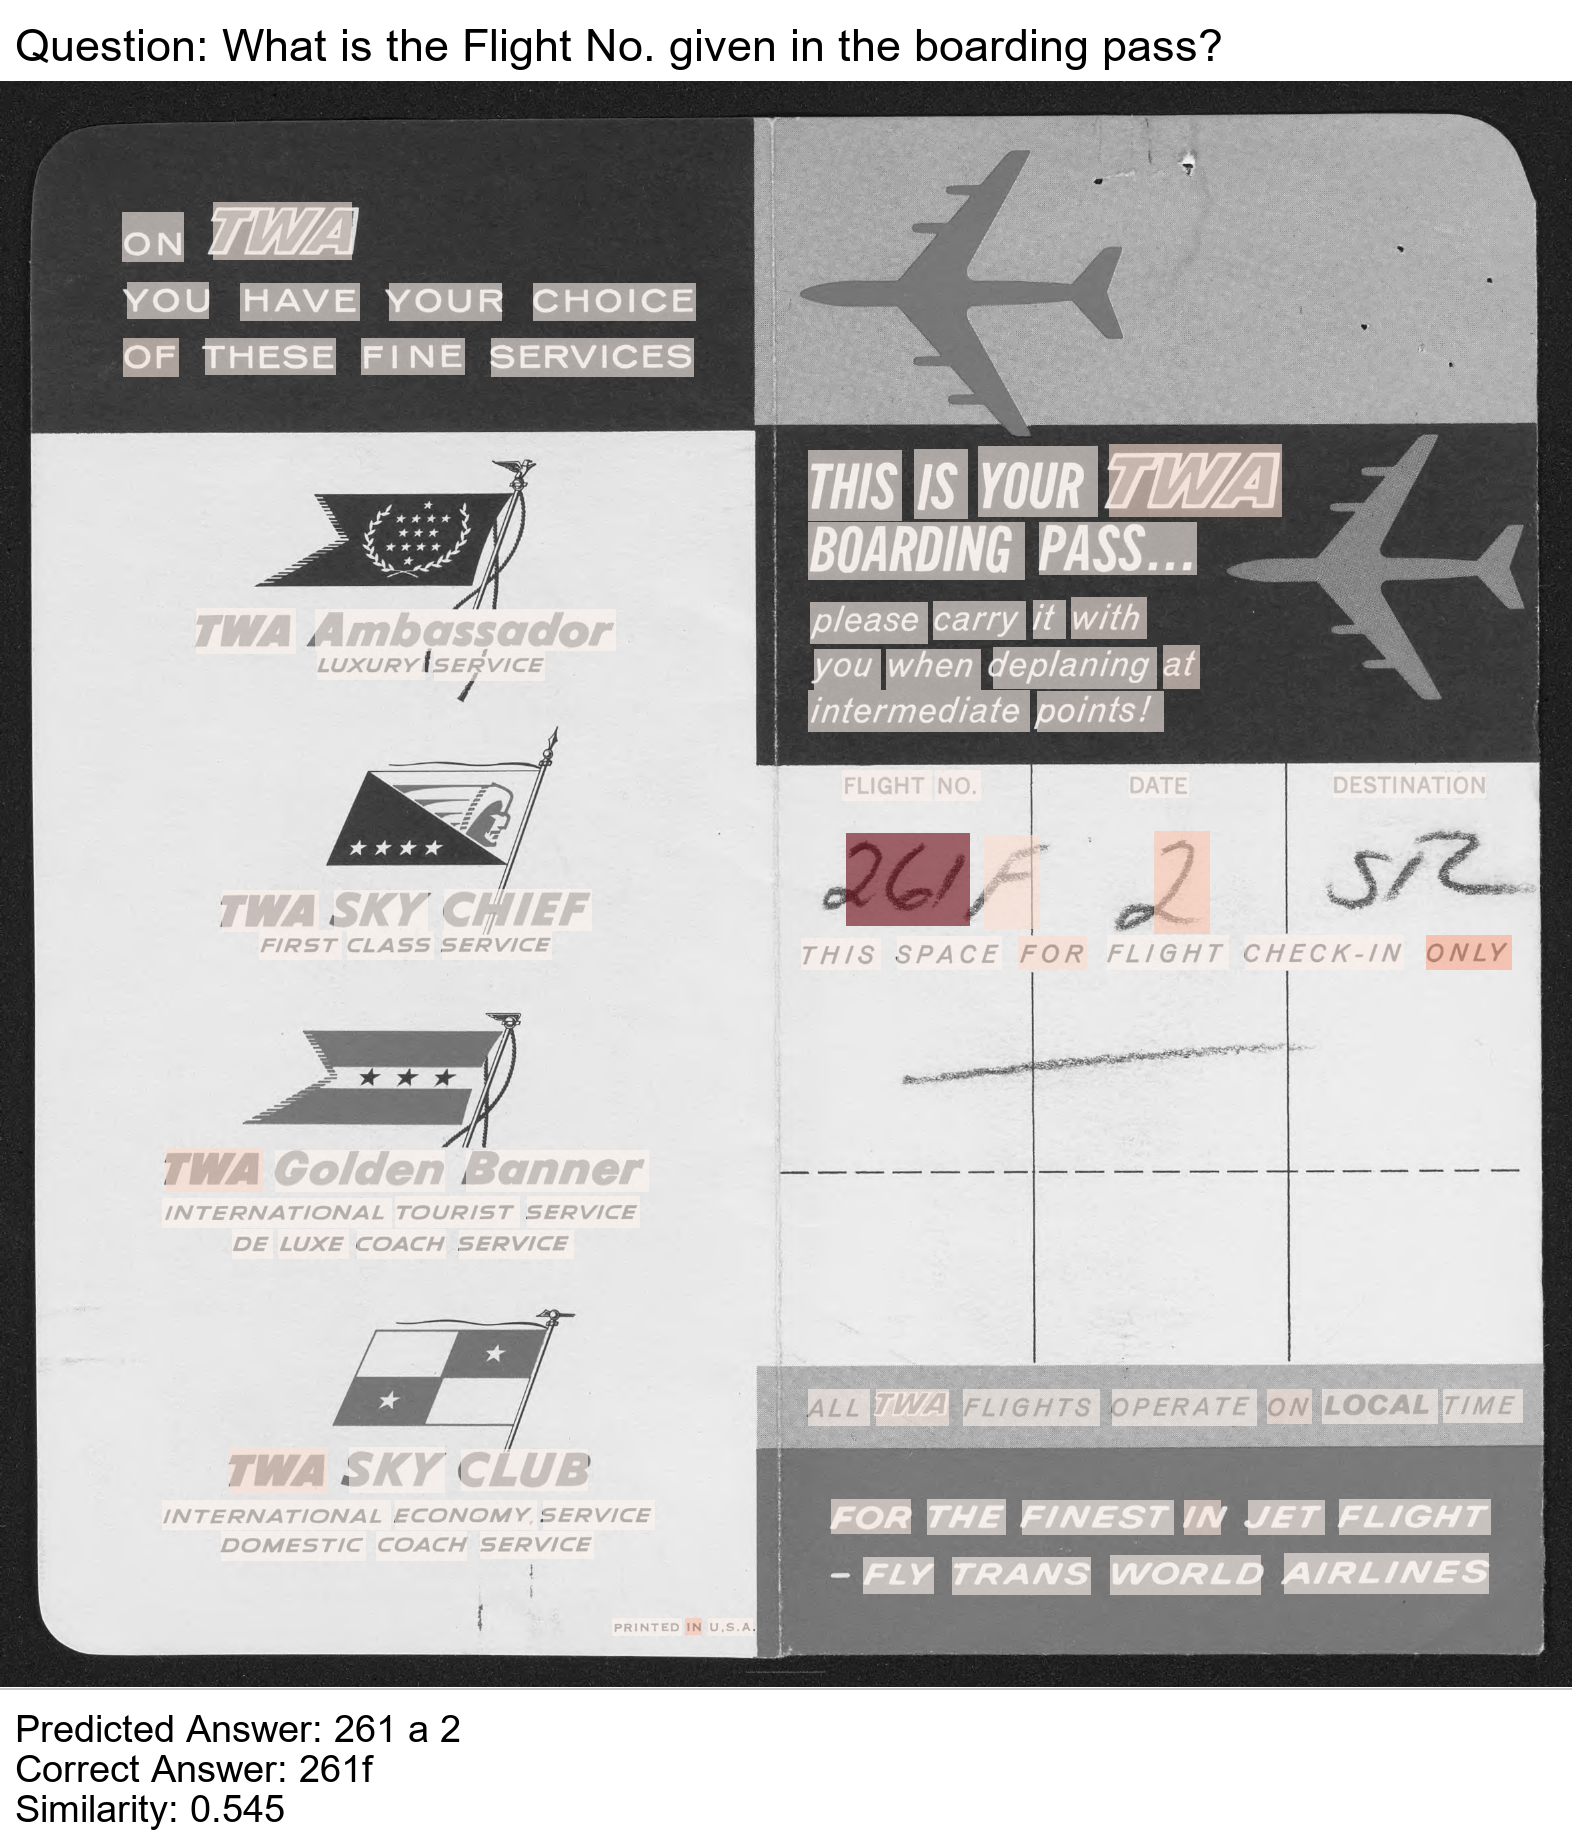 Question: What is the Flight No. given in the boarding pass?
ON TWA
YOU HAVE YOUR CHOICE
OF THESE FINE SERVICES
TWA Ambassador
LUXURY SERVICE
TWA SKY CHIEF
FIRST CLASS SERVICE
TWA Golden Banner
INTERNATIONAL TOURIST SERVICE
DE LUXE COACH SERVICE
TWA SKY CLUB
INTERNATIONAL ECONOMY SERVICE
DOMESTIC COACH SERVICE
PRINTED IN U.S.A.
THIS IS YOUR TWA
BOARDING PASS...
please carry it with
you when deplaning at
intermediate points!
FLIGHT NO. DATE DESTINATION
261F 2
THIS SPACE FOR FLIGHT CHECK-IN ONLY
ALL TWA FLIGHTS OPERATE ON LOCAL TIME
FOR THE FINEST IN JET FLIGHT
- FLY TRANS WORLD AIRLINES
Predicted Answer: 261 a 2
Correct Answer: 261f
Similarity: 0.545